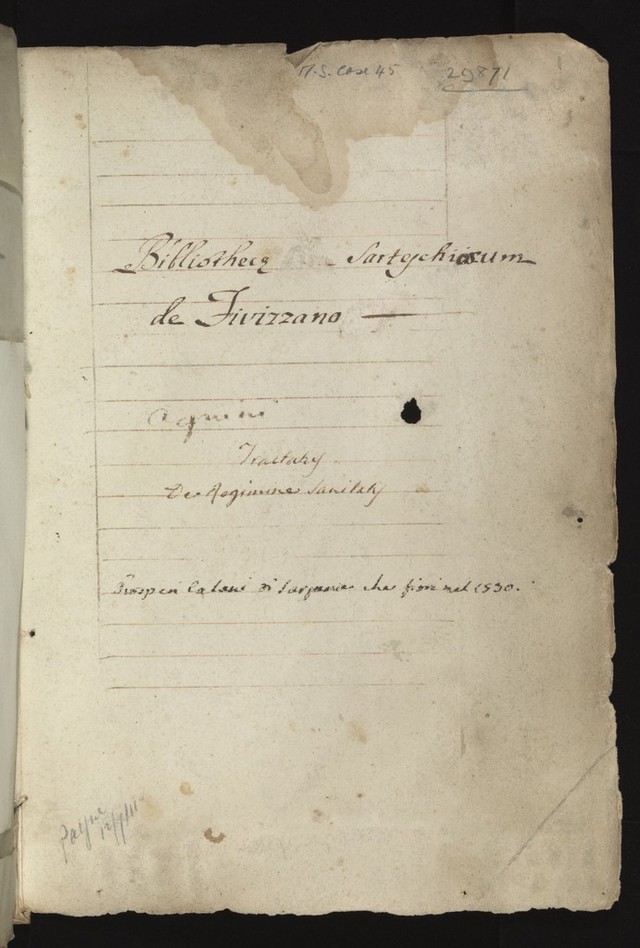 M.S. Case 45 29871
Bibliotheca Sarteschiorum
de Fivizzano
Tractatus
De Regimine Sanitatis
Prosperi Catani di Sarzana che fiorì nel 1530.
Payne
12/7/11